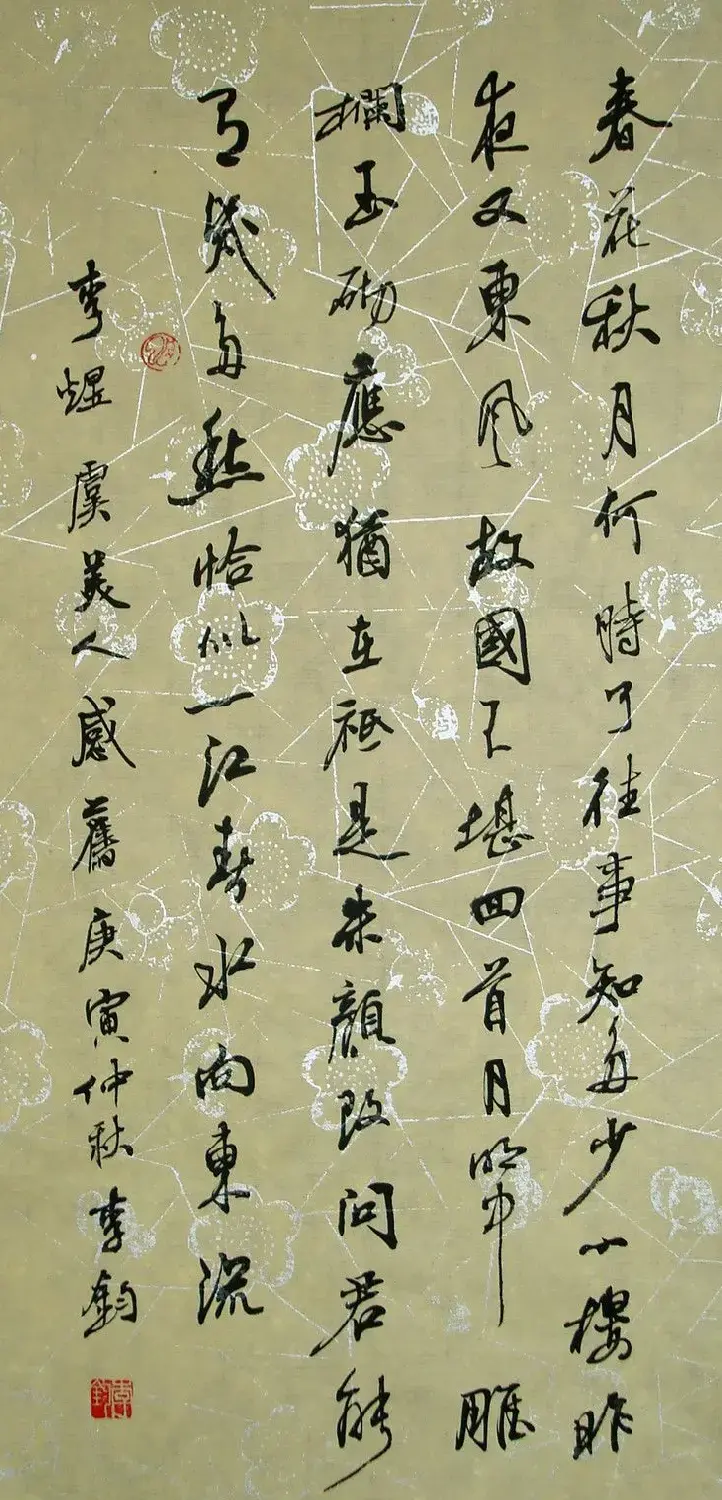 春花秋月何時了往事知多少小樓昨
夜又東風故國不堪回首月明中雕
欄玉砌應猶在祗是朱顏改問君能
有幾多愁恰似一江春水向東流
李煜虞美人感舊庚寅仲秋李鈞
李鈞